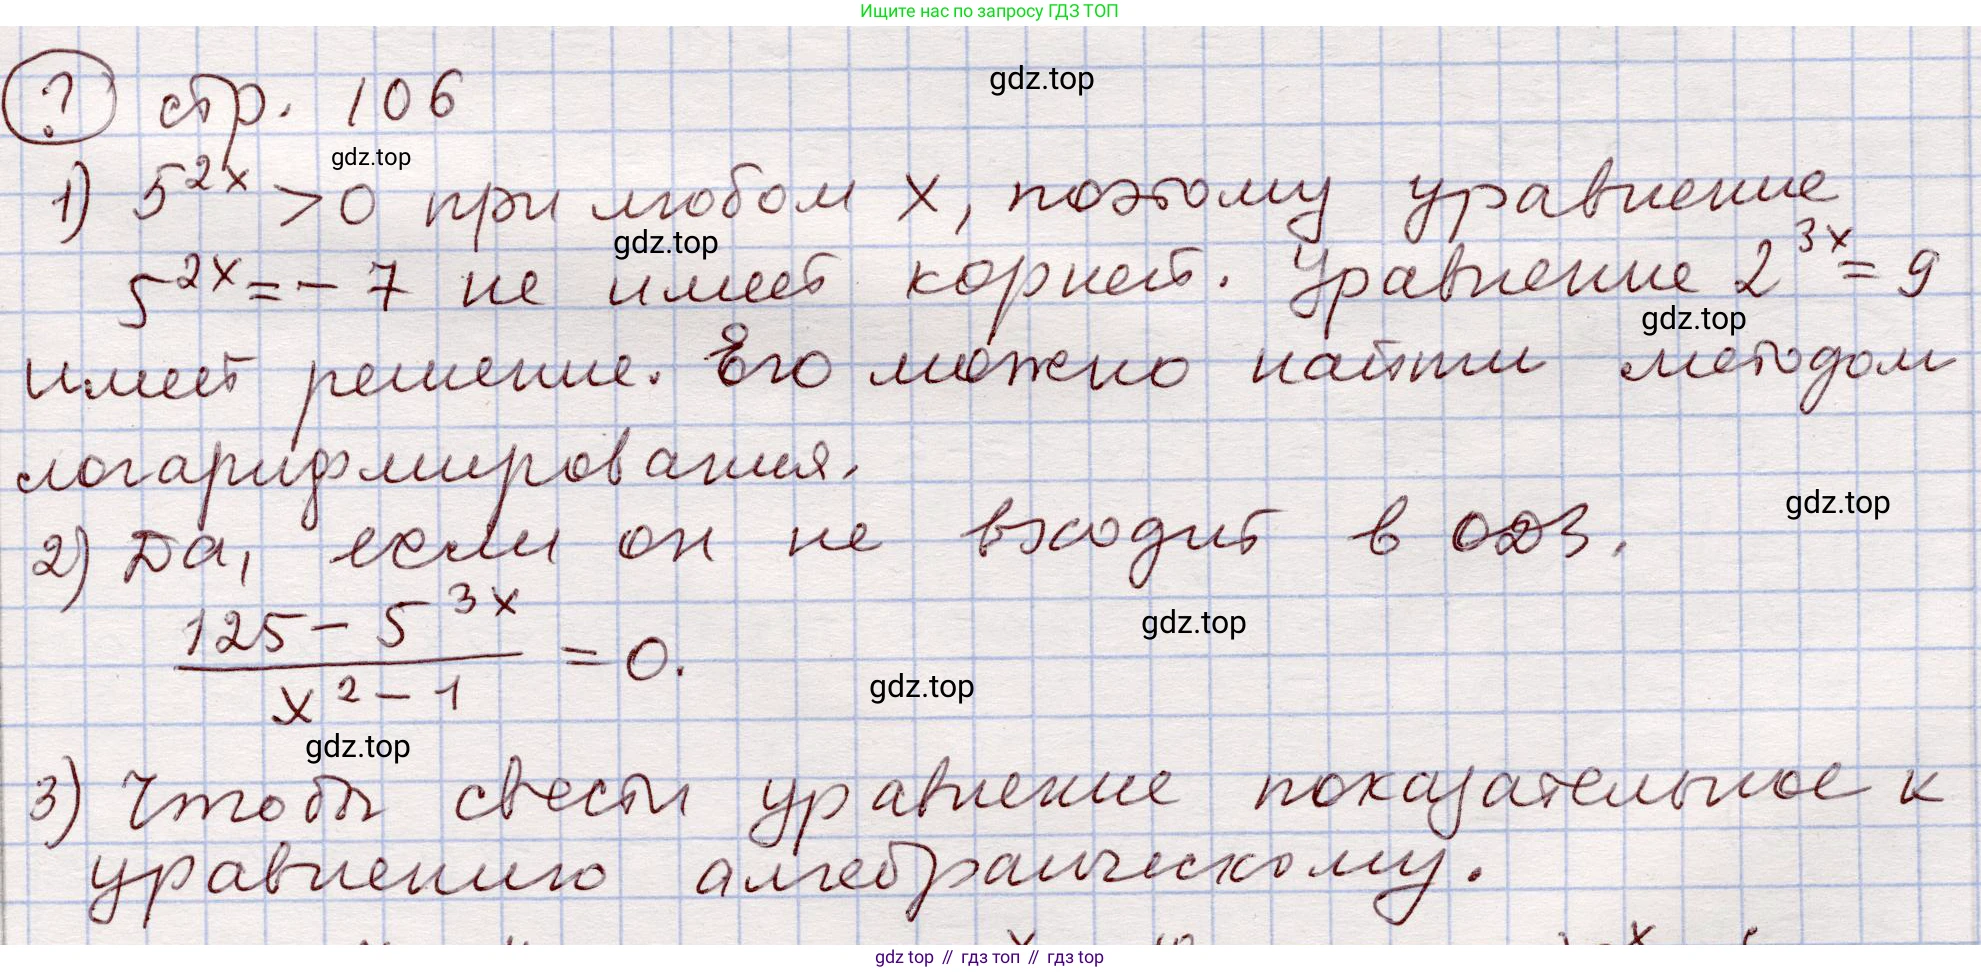 Ищите нас по запросу ГДЗ ТОП
? стр. 106
gdz.top
gdz.top
1) 5^{2x} > 0 при любом x, поэтому уравнение
gdz.top
5^{2x} = -7 не имеет корней. Уравнение 2^{3x} = 9
gdz.top
имеет решение. Его можно найти методом
логарифмирования.
gdz.top
2) Да, если он не входит в ОДЗ.
\frac{125 - 5^{3x}}{x^2 - 1} = 0.
gdz.top
gdz.top
gdz.top
3) Чтобы свести уравнение показательное к
уравнению алгебраическому.
gdz.top // гдз топ // гдз top